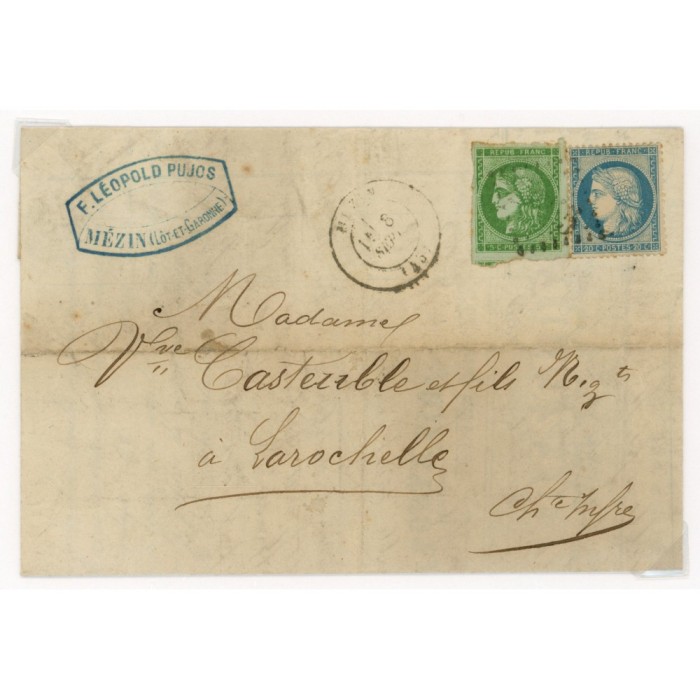 F. LÉOPOLD PUJOS
MÉZIN (LOT-ET-GARONNE)
MEZIN
8
SEPT
(45)
REPUB FRANC
5 C
REPUB FRANC
20 C POSTES 20 C
Madame
Vve Casteuble et fils Négts
à Larochelle
Chte Infre